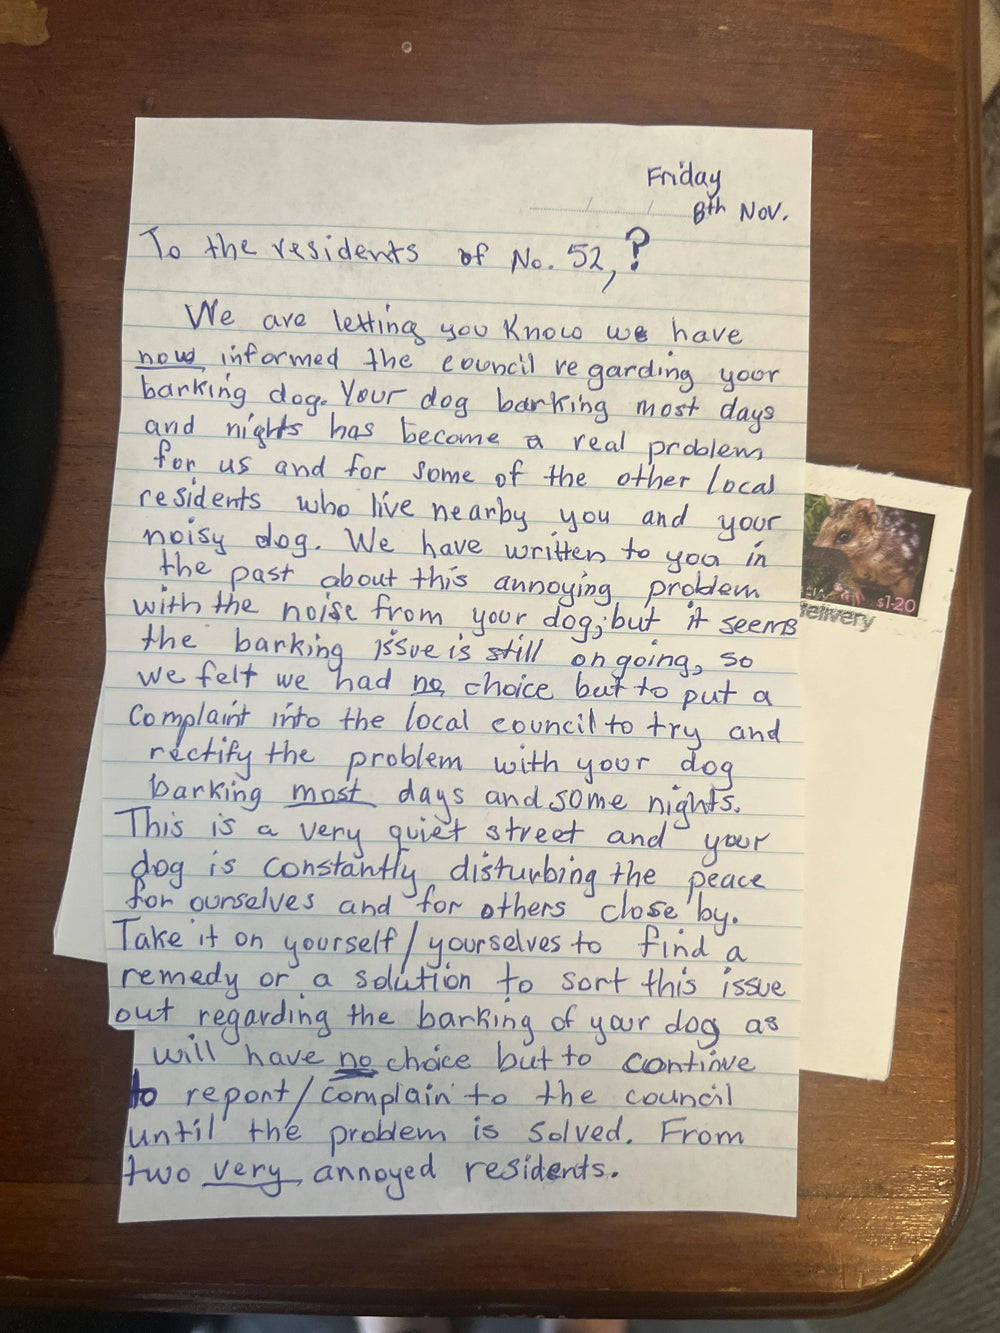 Friday
8th Nov.
To the residents of No. 52, ?
We are letting you know we have
now informed the council regarding your
barking dog. Your dog barking most days
and nights has become a real problem
for us and for some of the other local
residents who live nearby you and your
noisy dog. We have written to you in
the past about this annoying problem
with the noise from your dog, but it seems
the barking issue is still ongoing, so
we felt we had no choice but to put a
complaint into the local council to try and
rectify the problem with your dog
barking most days and some nights.
This is a very quiet street and your
dog is constantly disturbing the peace
for ourselves and for others close by.
Take it on yourself/yourselves to find a
remedy or a solution to sort this issue
out regarding the barking of your dog as
will have no choice but to continue
to report/complain to the council
until the problem is solved. From
two very annoyed residents.
$1.20
delivery